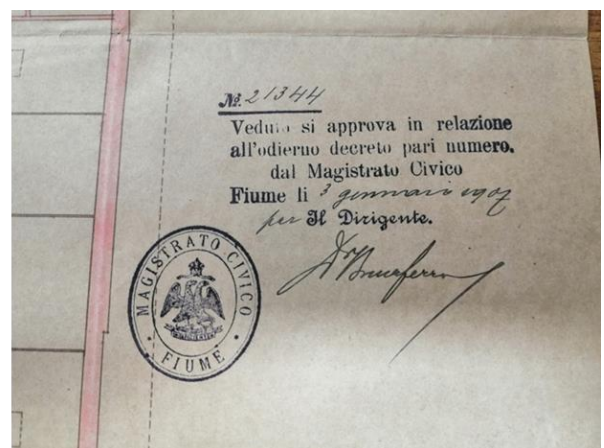 № 21344
Veduto si approva in relazione
all'odierno decreto pari numero.
dal Magistrato Civico
Fiume li 3 gennaio 1907
per Il Dirigente.
MAGISTRATO CIVICO
FIUME